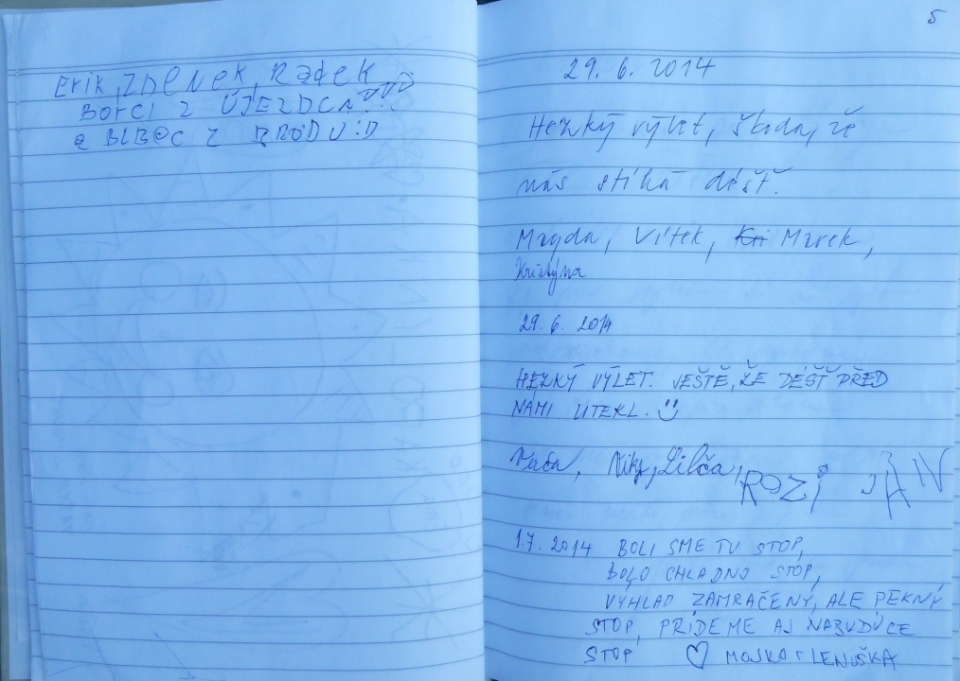 Erik, ZDENEK, RADEK
BORCI Z ÚJEZDCA!!!
a BLBEC Z BRODU :D
5
29. 6. 2014
Hezký výlet, škoda, že
nás stíhá déšť.
Magda, Vítek, Marek,
Kristýna
29. 6. 2014
HEZKÝ VÝLET. JEŠTĚ, ŽE DÉŠŤ PŘED
NÁMI UTEKL. :)
Niky, Lilča, ROZI JAN
1.7. 2014 BOLI SME TU STOP,
BOLO CHLADNO STOP,
VÝHLAD ZAMRAČENÝ, ALE PEKNÝ
STOP, PRÍDEME AJ NABUDÚCE
STOP ♡ MOJKA + LENUŠKA